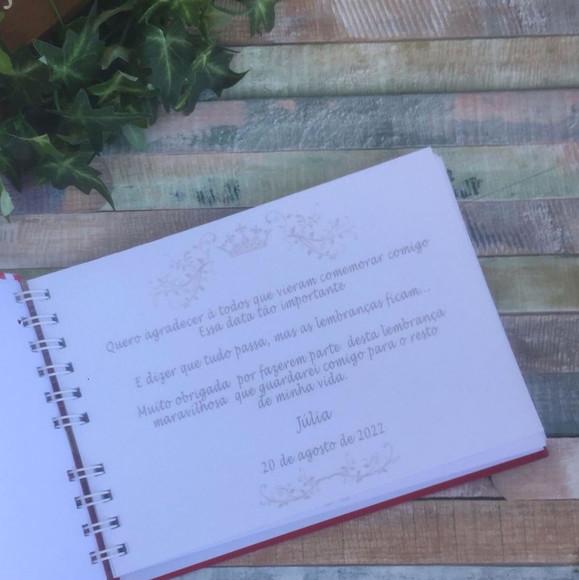 Quero agradecer à todos que vieram comemorar comigo
Essa data tão importante
E dizer que tudo passa, mas as lembranças ficam...
Muito obrigada por fazerem parte desta lembrança
maravilhosa que guardarei comigo para o resto
de minha vida.
Júlia
20 de agosto de 2022